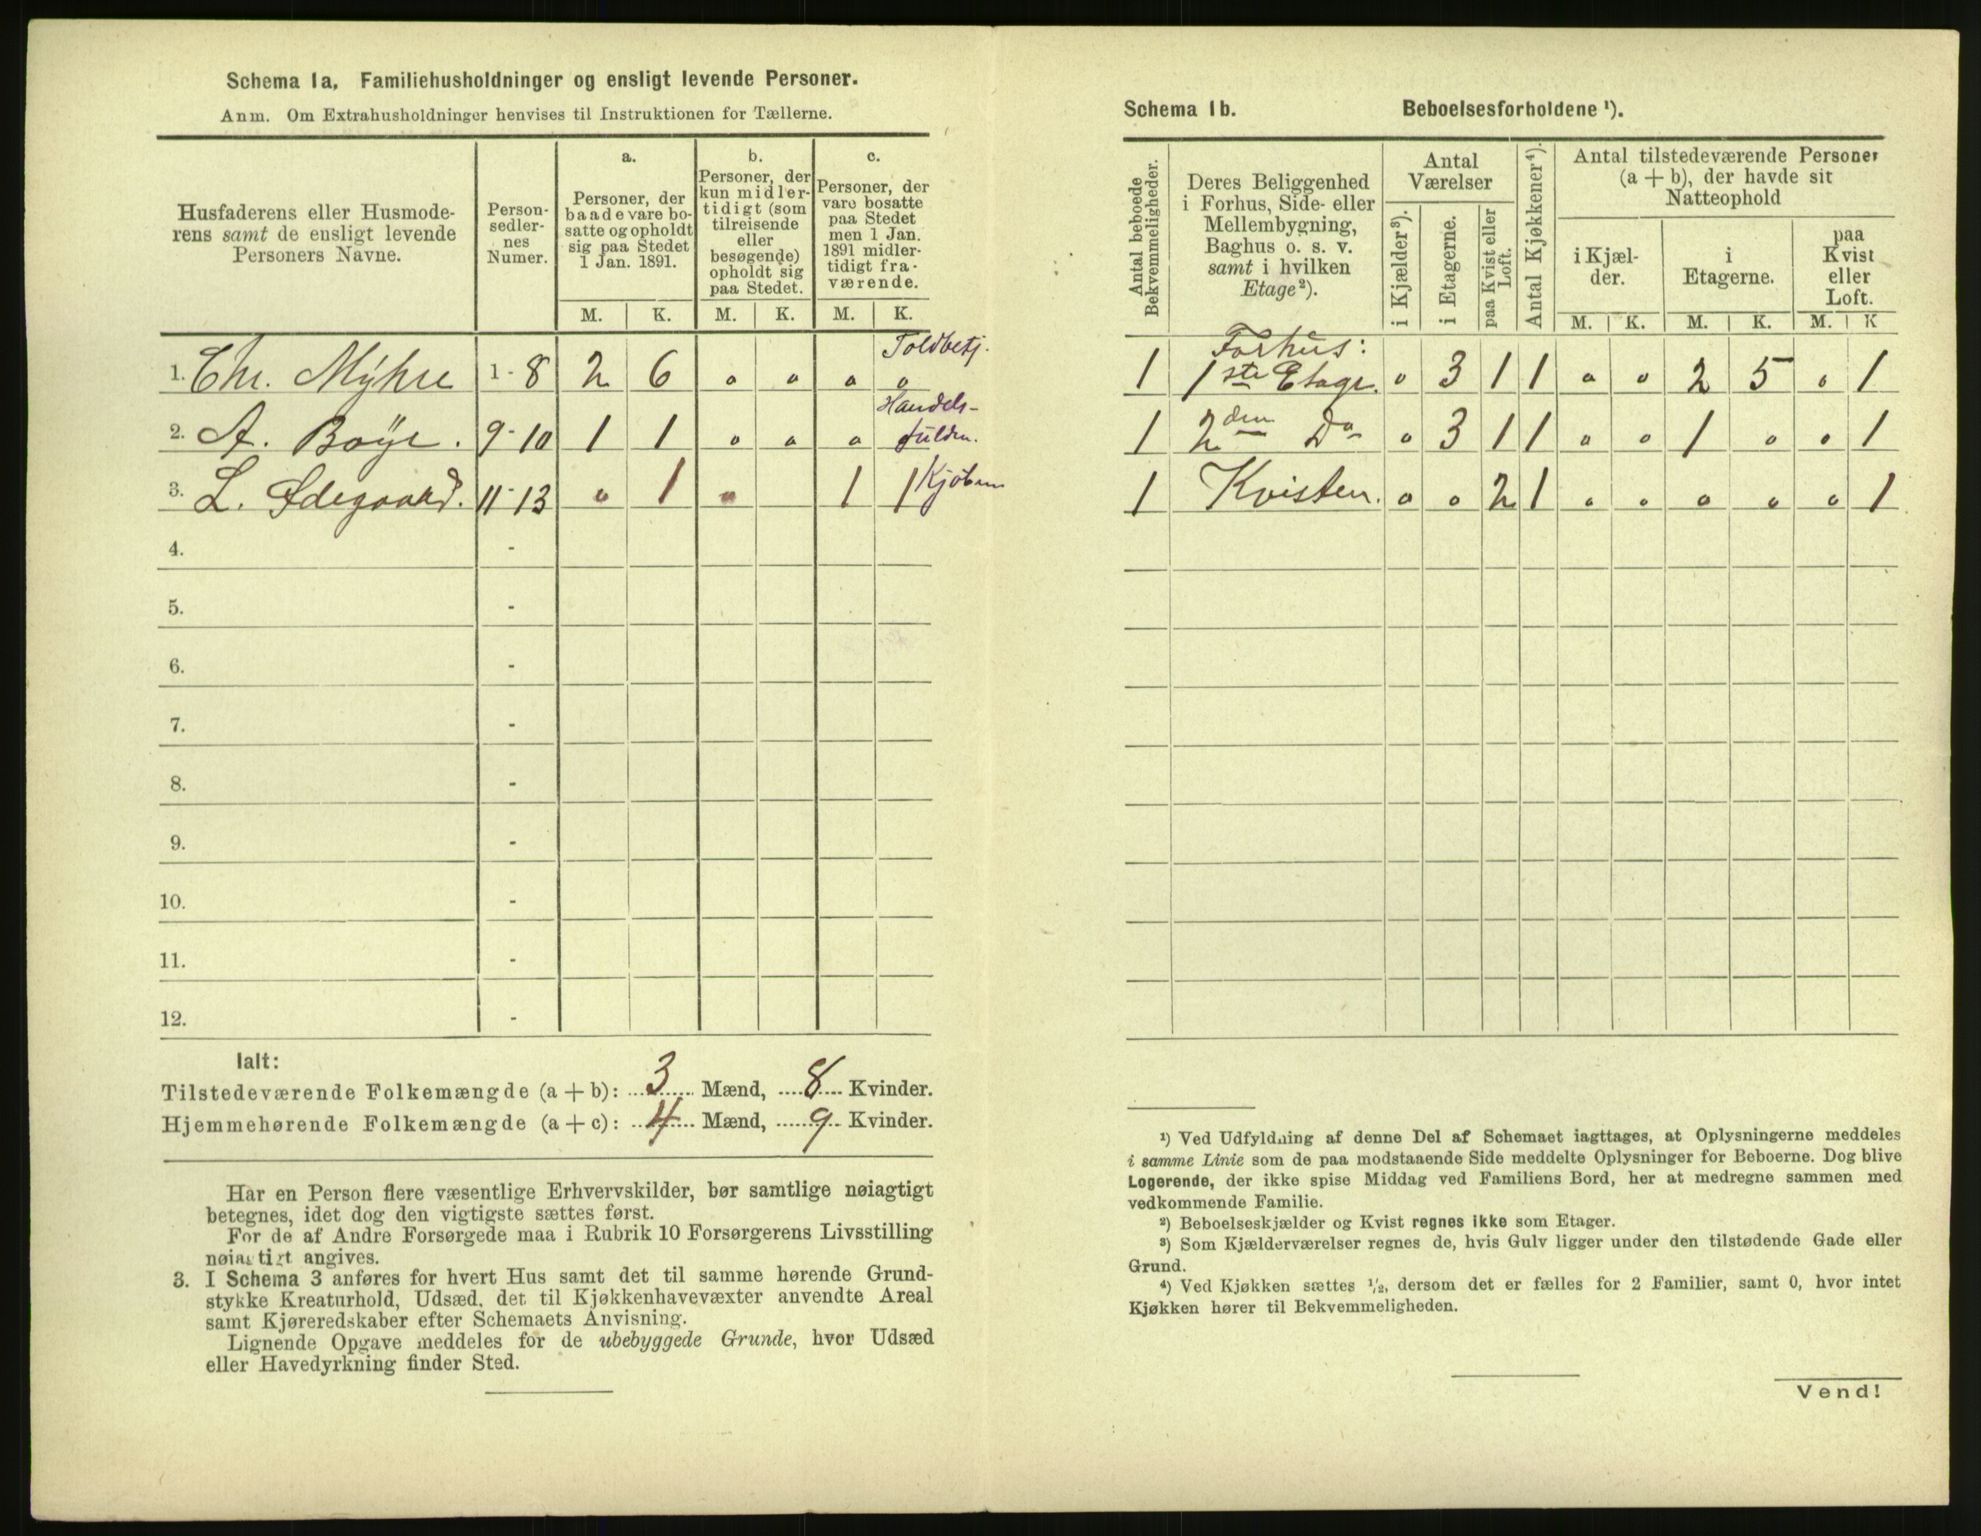 Schema 1a, Familiehusholdninger og ensligt levende Personer.
Anm. Om Extrahusholdninger henvises til Instruktionen for Tællerne.
Husfaderens eller Husmode-
rens samt de ensligt levende
Personers Navne.
Person-
sedler-
nes
Numer.
a.
Personer, der
baade vare bo-
satte og opholdt
sig paa Stedet
1 Jan. 1891.
b.
Personer, der
kun midler-
tidigt (som
tilreisende
eller
besøgende)
opholdt sig
paa Stedet.
c.
Personer, der
vare bosatte
paa Stedet
men 1 Jan.
1891 midler-
tidigt fra-
værende.
M. K. M. K. M. K.
Toldbetj.
1. Chr. Myhre 1-8 2 6 o o o o
Handels-
2. A. Boye. 9-10 1 1 o o o fuldm.
3. L. Ødegaard. 11-13 o 1 o 1 1 Kjøbm
4. -
5. -
6. -
7. -
8. -
9. -
10. -
11. -
12. -
Ialt:
Tilstedeværende Folkemængde (a + b): 3 Mænd, 8 Kvinder.
Hjemmehørende Folkemængde (a + c): 4 Mænd, 9 Kvinder.
Har en Person flere væsentlige Erhvervskilder, bør samtlige nøiagtigt
betegnes, idet dog den vigtigste sættes først.
For de af Andre Forsørgede maa i Rubrik 10 Forsørgerens Livsstilling
nøiagtigt angives.
3. I Schema 3 anføres for hvert Hus samt det til samme hørende Grund-
stykke Kreaturhold, Udsæd, det til Kjøkkenhavevæxter anvendte Areal
samt Kjøreredskaber efter Schemaets Anvisning.
Lignende Opgave meddeles for de ubebyggede Grunde, hvor Udsæd
eller Havedyrkning finder Sted.
Schema 1b. Beboelsesforholdene ¹).
Antal beboede
Bekvemmeligheder.
Deres Beliggenhed
i Forhus, Side- eller
Mellembygning,
Baghus o. s. v.
samt i hvilken
Etage²).
Antal
Værelser
i Kjælder³).
i Etagerne.
paa Kvist eller
Loft.
Antal Kjøkkener⁴).
Antal tilstedeværende Personer
(a + b), der havde sit
Natteophold
i Kjæl-
der.
i
Etagerne.
paa
Kvist
eller
Loft.
M. K. M. K. M. K
Forhus:
1 1ste Etage. o 3 1 1 o o 2 5 o 1
1 2den Do o 3 1 1 o o 1 o o 1
1 Kvisten. o o 2 1 o o o o o 1
¹) Ved Udfyldning af denne Del af Schemaet iagttages, at Oplysningerne meddeles
i samme Linie som de paa modstaaende Side meddelte Oplysninger for Beboerne. Dog blive
Logerende, der ikke spise Middag ved Familiens Bord, her at medregne sammen med
vedkommende Familie.
²) Beboelseskjælder og Kvist regnes ikke som Etager.
³) Som Kjælderværelser regnes de, hvis Gulv ligger under den tilstødende Gade eller
Grund.
⁴) Ved Kjøkken sættes ½, dersom det er fælles for 2 Familier, samt 0, hvor intet
Kjøkken hører til Bekvemmeligheden.
Vend!